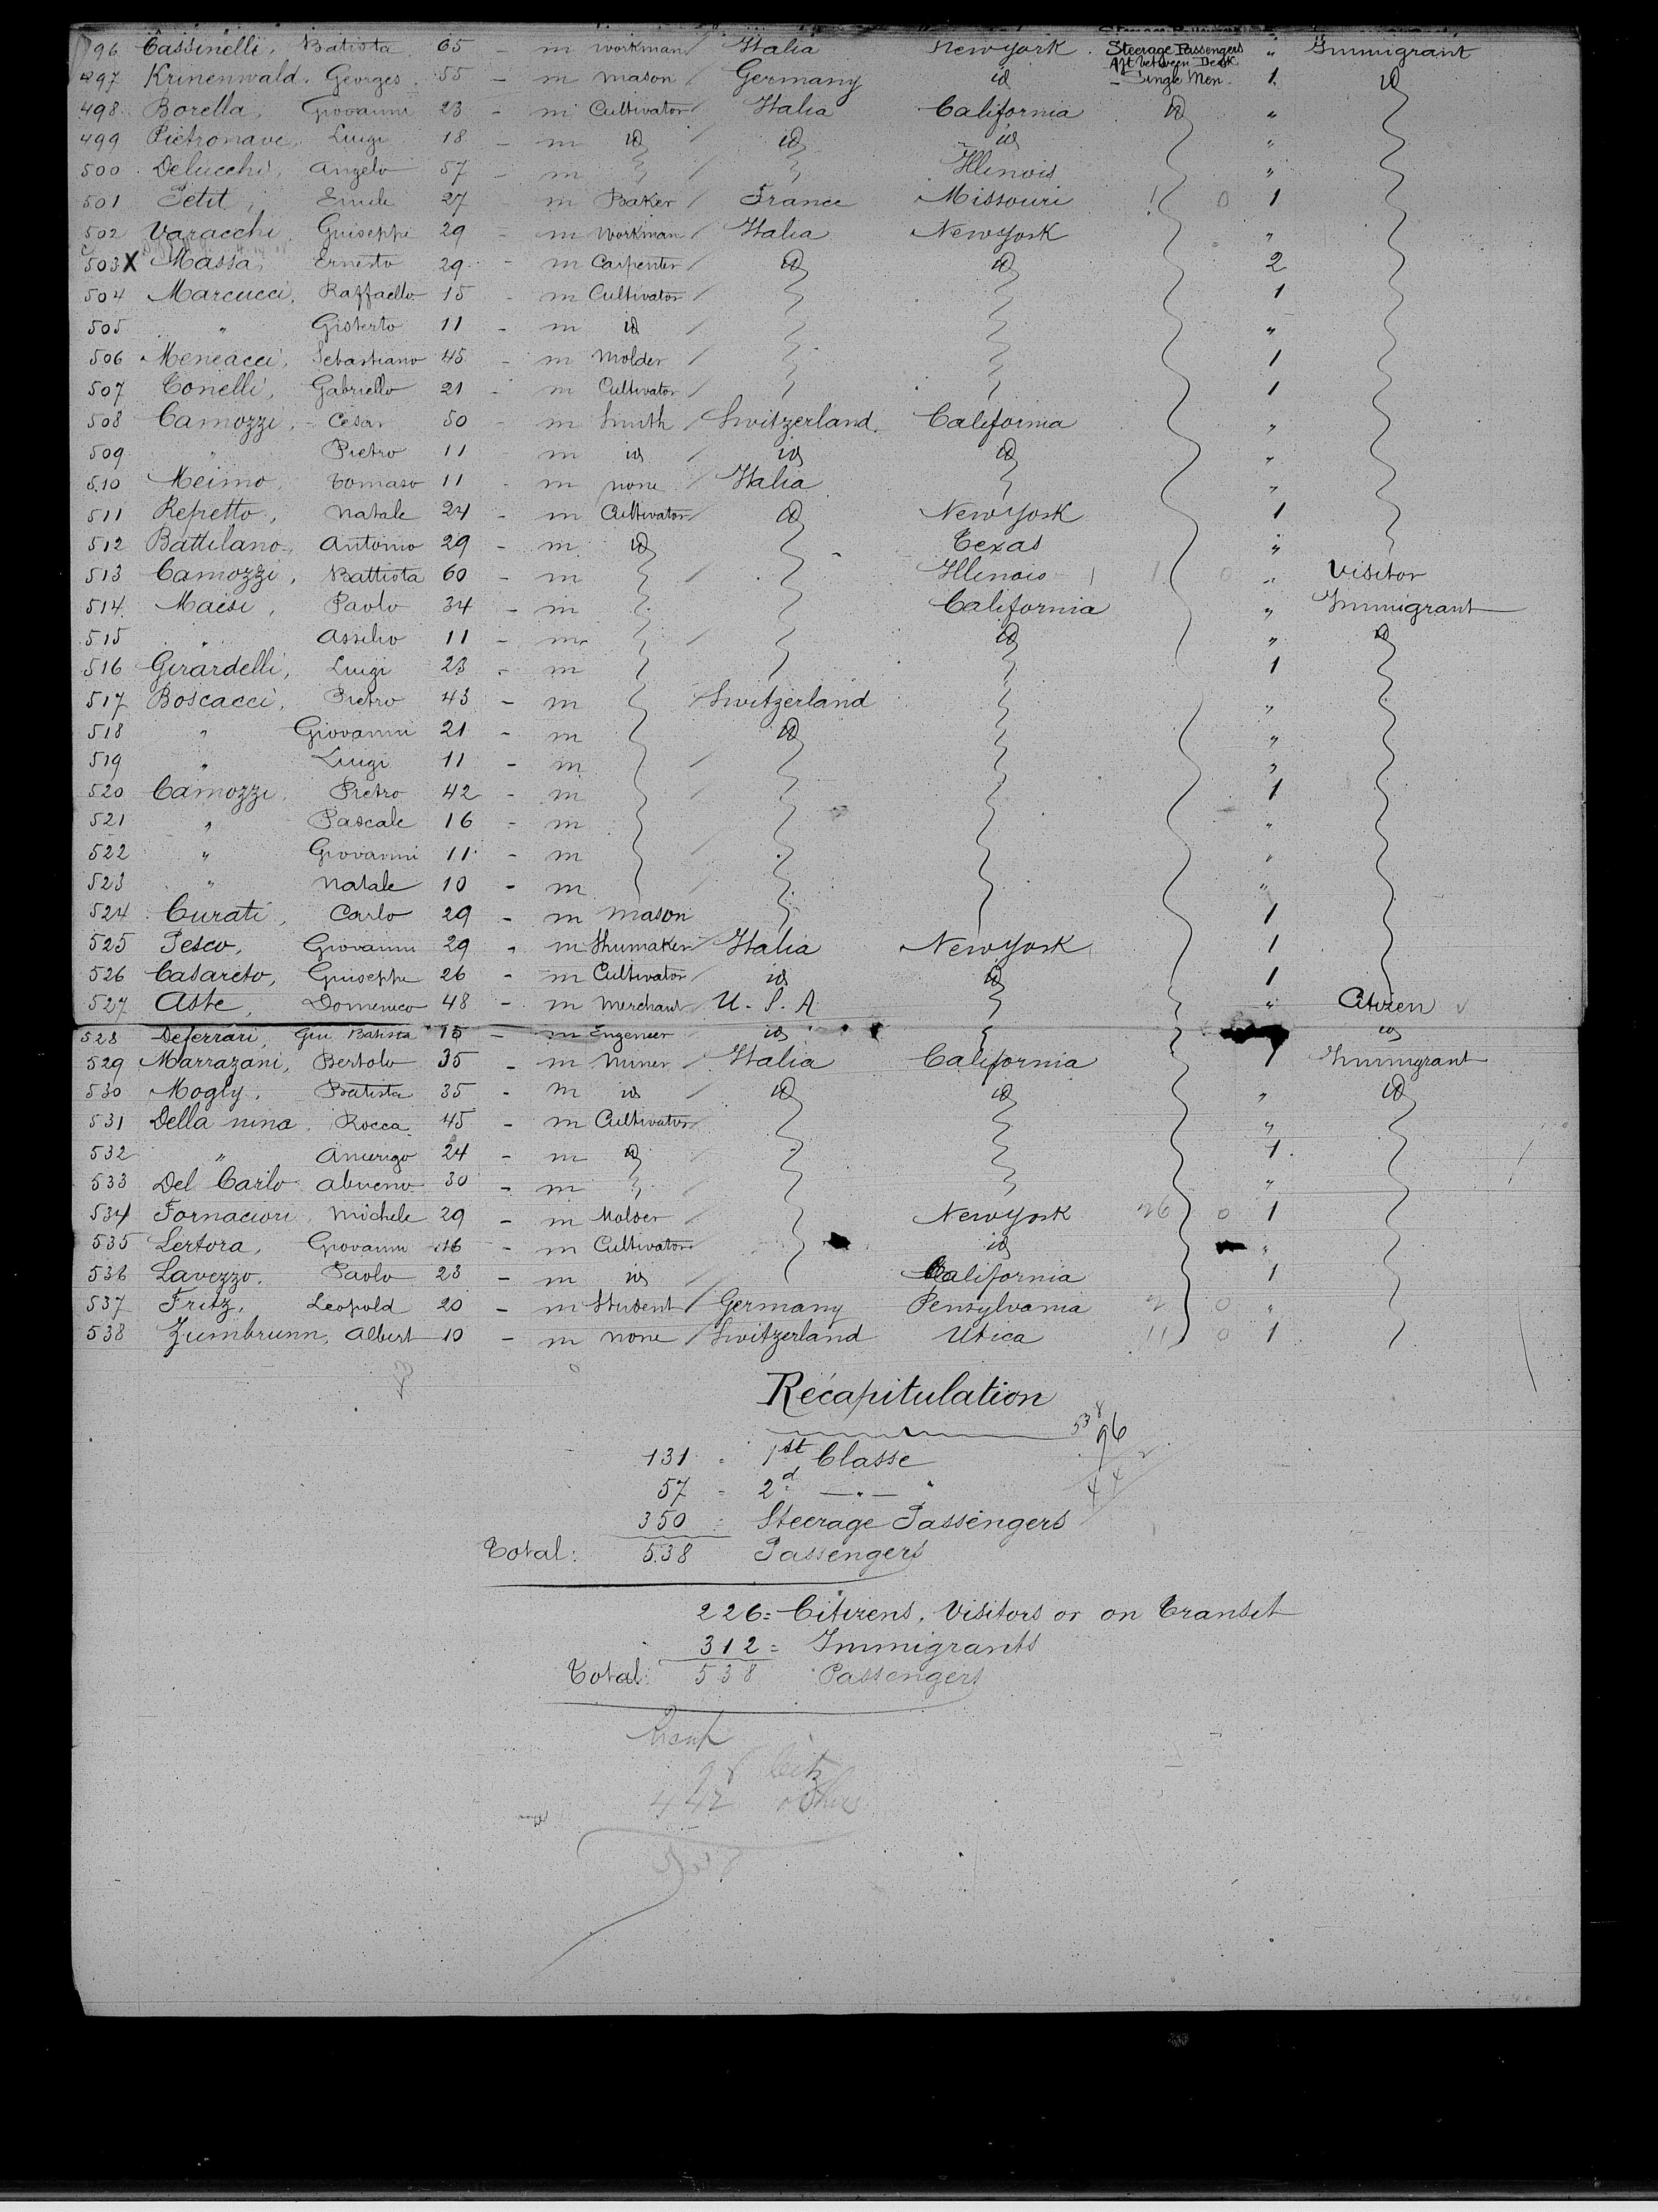 496 Cassinelli, Batista 65 - m workman Italia New York Steerage Passengers " Immigrant
Aft between Deck
497 Krinenwald. Georges 55 - m mason Germany id - Single Men 1 id
498 Borella, Giovanni 23 - m Cultivator Italia California id "
499 Pietronave, Luigi 18 - m id id id "
500 Delucchi, Angelo 57 - m Illinois "
501 Petit, Emile 27 m Baker France Missouri 1 0 1
502 Varacchi Guiseppe 29 - m workman Italia New York "
503 X Massa, Ernesto 29 - m Carpenter id id 2
504 Marcucci, Raffaello 15 - m Cultivator 1
505 " Gisberto 11 - m id "
506 Meneacci, Sebastiano 45 - m Molder 1
507 Tonelli, Gabriello 21 - m Cultivator 1
508 Camozzi, Cesar 50 - m Smith Switzerland California "
509 " Pietro 11 - m id id id "
510 Meimo, Tomaso 11 - m none Italia "
511 Repetto, Natale 24 - m Cultivator id New York 1
512 Battilano, Antonio 29 - m id Texas "
513 Camozzi, Battista 60 - m Illinois 1 1 0 " Visitor
514 Maisi, Paolo 34 - m California " Immigrant
515 " Assilio 11 - m id " id
516 Girardelli, Luigi 23 - m 1
517 Boscacci, Pietro 43 - m Switzerland "
518 " Giovanni 21 - m id "
519 " Luigi 11 - m "
520 Camozzi, Pietro 42 - m 1
521 " Pascale 16 - m "
522 " Giovanni 11 - m "
523 " Natale 10 - m "
524 Curati, Carlo 29 - m mason 1
525 Pesco, Giovanni 29 - m Shumaker Italia New York 1
526 Casareto, Guiseppe 26 - m Cultivator id id 1
527 Aste, Domenico 48 - m Merchant U. S. A. " Citizen
528 Deferrari, Giu Batista 15 - m Engeneer id id
529 Marrazani, Bertolo 35 - m Miner Italia California 1 Immigrant
530 Mogly, Batista 35 - m id id id " id
531 Della nina, Rocca 45 - m Cultivator "
532 " Amerigo 24 - m id 1
533 Del Carlo abveno 30 - m "
534 Fornaciori, Michele 29 - m Molder New York 26 0 1
535 Lertora, Giovanni 16 - m Cultivator id "
536 Lavezzo, Paolo 23 - m id California 1
537 Fritz, Leopold 20 - m Student Germany Pensylvania 2 0 "
538 Zumbrunn, Albert 10 - m none Switzerland Utica 11 0 1
Récapitulation
538 96
131 = 1st Classe
57 = 2d — " — "
44
350 = Steerage Passengers
Total: 538 Passengers
226 = Citizens, Visitors or on Transit
312 = Immigrants
Total: 538 Passengers
98 Citz
442 others